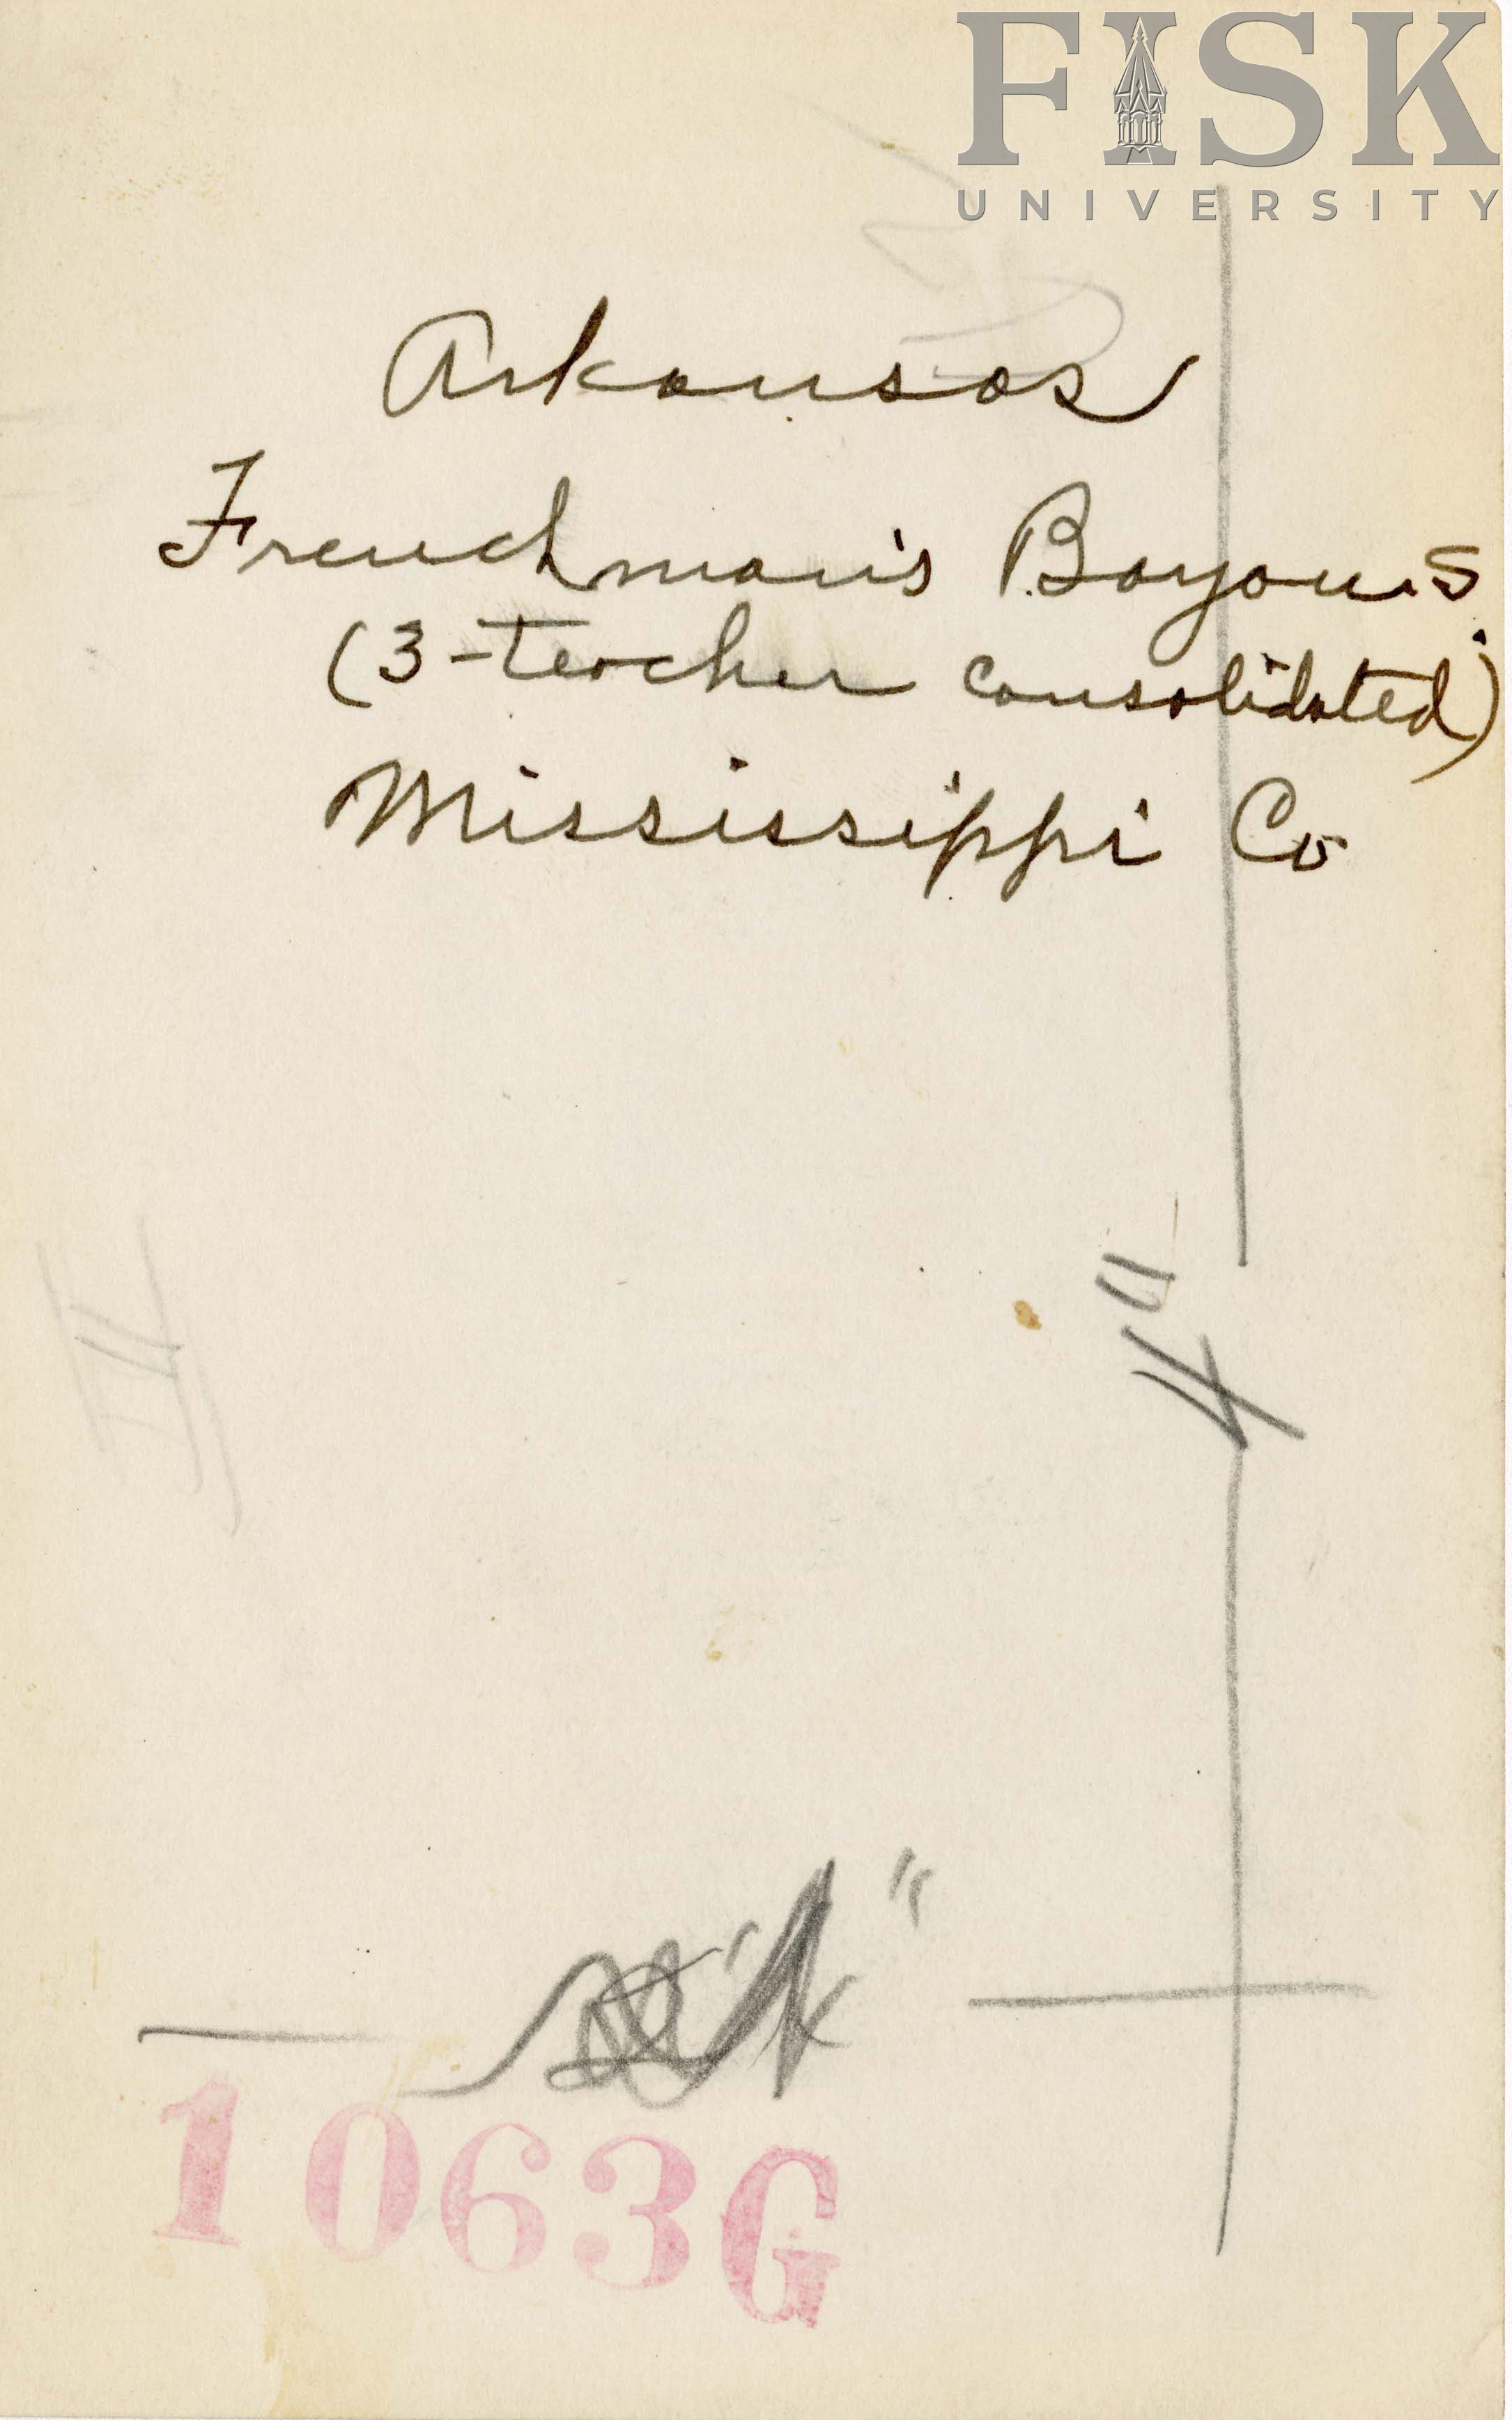 FISK
UNIVERSITY
Arkansas
Frenchman's Bayou S.
(3-teacher consolidated)
Mississippi Co
4"
1063G